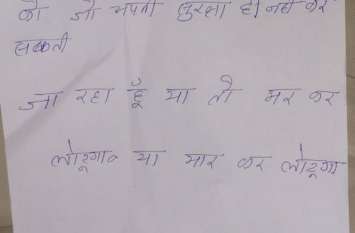 को जो अपनी सुरक्षा ही नही कर
सकती
जा रहा हूँ या तो मर कर
लोटूगा या मार कर लोटूगा